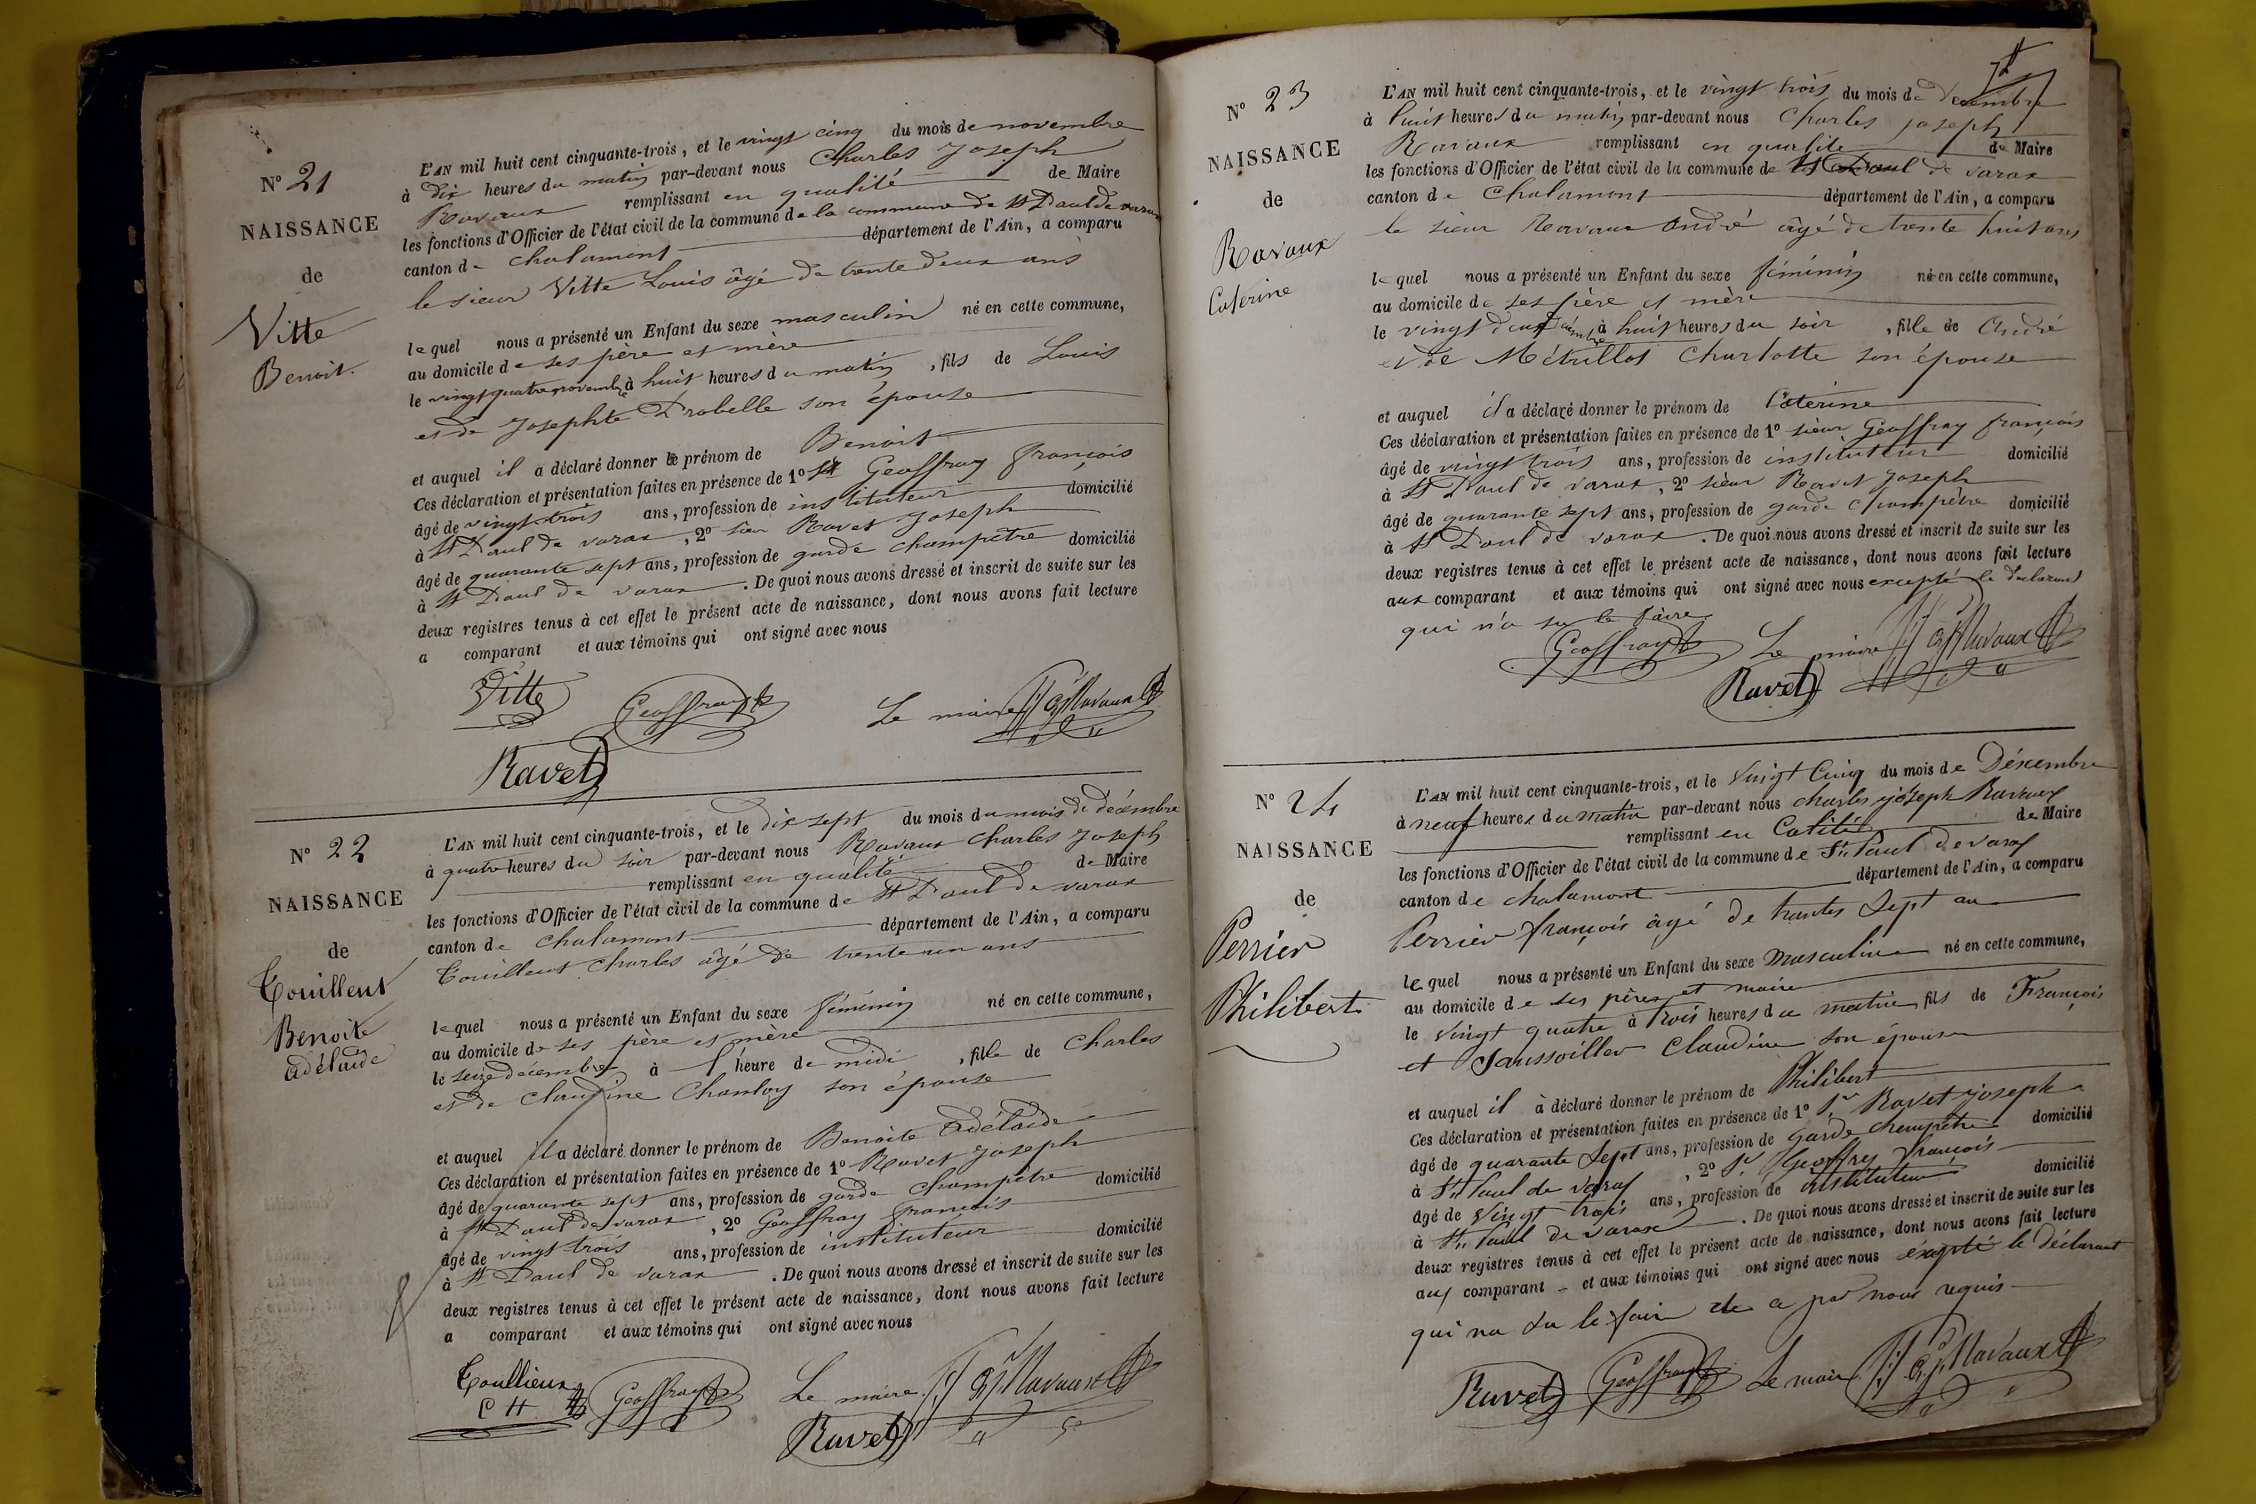 N° 21
NAISSANCE
de
Vitte
Benoit.
L'AN mil huit cent cinquante-trois, et le vingt cinq du mois de novembre
à dix heures du matin par-devant nous Charles Joseph
Ravaux remplissant en qualité de Maire
les fonctions d'Officier de l'état civil de la commune de la commune de St Paul de varax
canton de Chalamont département de l'Ain, a comparu
le sieur Vitte Louis âgé de trente deux ans
lequel nous a présenté un Enfant du sexe masculin né en cette commune,
au domicile de ses père et mère
le vingt quatre novembre à huit heures du matin, fils de Louis
et de Josephte Drabelle son épouse
et auquel il a déclaré donner le prénom de Benoit
Ces déclaration et présentation faites en présence de 1° Sr Geoffray françois
âgé de vingt trois ans, profession de instituteur domicilié
à St Paul de varax, 2° sieur Ravet Joseph
âgé de quarante sept ans, profession de garde champêtre domicilié
à St Paul de varax. De quoi nous avons dressé et inscrit de suite sur les
deux registres tenus à cet effet le présent acte de naissance, dont nous avons fait lecture
a comparant et aux témoins qui ont signé avec nous
Vitte Geoffray Le maire Ravaux
Ravet
N° 22
NAISSANCE
de
Touillent
Benoite
adélaide
L'AN mil huit cent cinquante-trois, et le dix sept du mois du mois de décembre
à quatre heures du soir par-devant nous Ravaux Charles Joseph
remplissant en qualité de Maire
les fonctions d'Officier de l'état civil de la commune de St Paul de varax
canton de Chalamont département de l'Ain, a comparu
Touilleut Charles âgé de trente un ans
lequel nous a présenté un Enfant du sexe féminin né en cette commune,
au domicile de ses père et mère
le seize décembre à 1 heure de midi, fille de Charles
et de Claudine Chanloy son épouse
et auquel il a déclaré donner le prénom de Benoite Adélaide
Ces déclaration et présentation faites en présence de 1° Ravet Joseph
âgé de quarante sept ans, profession de garde champêtre domicilié
à St Paul de varax, 2° Geoffray françois
âgé de vingt trois ans, profession de instituteur domicilié
à St Paul de varax. De quoi nous avons dressé et inscrit de suite sur les
deux registres tenus à cet effet le présent acte de naissance, dont nous avons fait lecture
a comparant et aux témoins qui ont signé avec nous
Toullieux Geoffray Le maire Ravaux
C H Ravet
N° 23
NAISSANCE
de
Ravaux
Caterine
L'AN mil huit cent cinquante-trois, et le vingt trois du mois de décembre
à huit heures du matin par-devant nous Charles joseph
Ravaux remplissant en qualité de Maire
les fonctions d'Officier de l'état civil de la commune de St Paul de varax
canton de Chalamont département de l'Ain, a comparu
le sieur Ravaux André âgé de trente huit ans
lequel nous a présenté un Enfant du sexe féminin né en cette commune,
au domicile de ses père et mère
le vingt deux décembre à huit heures du soir, fille de André
et de Métrillot Charlotte son épouse
et auquel il a déclaré donner le prénom de Caterine
Ces déclaration et présentation faites en présence de 1° sieur Geoffray françois
âgé de vingt trois ans, profession de instituteur domicilié
à St Paul de varax, 2° sieur Ravet Joseph
âgé de quarante sept ans, profession de garde champêtre domicilié
à St Paul de varax. De quoi nous avons dressé et inscrit de suite sur les
deux registres tenus à cet effet le présent acte de naissance, dont nous avons fait lecture
aux comparant et aux témoins qui ont signé avec nous excepté le déclarant
qui n'a su le faire
Geoffray Le maire Ravaux
Ravet
N° 24
NAISSANCE
de
Perrier
Philibert
L'AN mil huit cent cinquante-trois, et le Vingt Cinq du mois de Désembre
à neuf heures du matin par-devant nous charles joseph Ravaux
remplissant en Calité de Maire
les fonctions d'Officier de l'état civil de la commune de St Paul de varax
canton de chalamont département de l'Ain, a comparu
Perrier françois âgé de trantes Sept an
lequel nous a présenté un Enfant du sexe Masculin né en cette commune,
au domicile de ses pères et maire
le Vingt quatre à trois heures du matin, fils de François
et Saussoiller Claudine son épouse
et auquel il à déclaré donner le prénom de Philibert
Ces déclaration et présentation faites en présence de 1° Sr Ravet joseph
âgé de quarante Sept ans, profession de Garde chempêtre domicilié
à St Paul de varax, 2° Sr Geoffrey françois
âgé de Vingt trois ans, profession de institituteur domicilié
à St Paul de varax. De quoi nous avons dressé et inscrit de suite sur les
deux registres tenus à cet effet le présent acte de naissance, dont nous avons fait lecture
aux comparant et aux témoins qui ont signé avec nous éxepté le déclarant
qui na su le faire de a par nous requis
Ravet Geoffray Le maire Ravaux